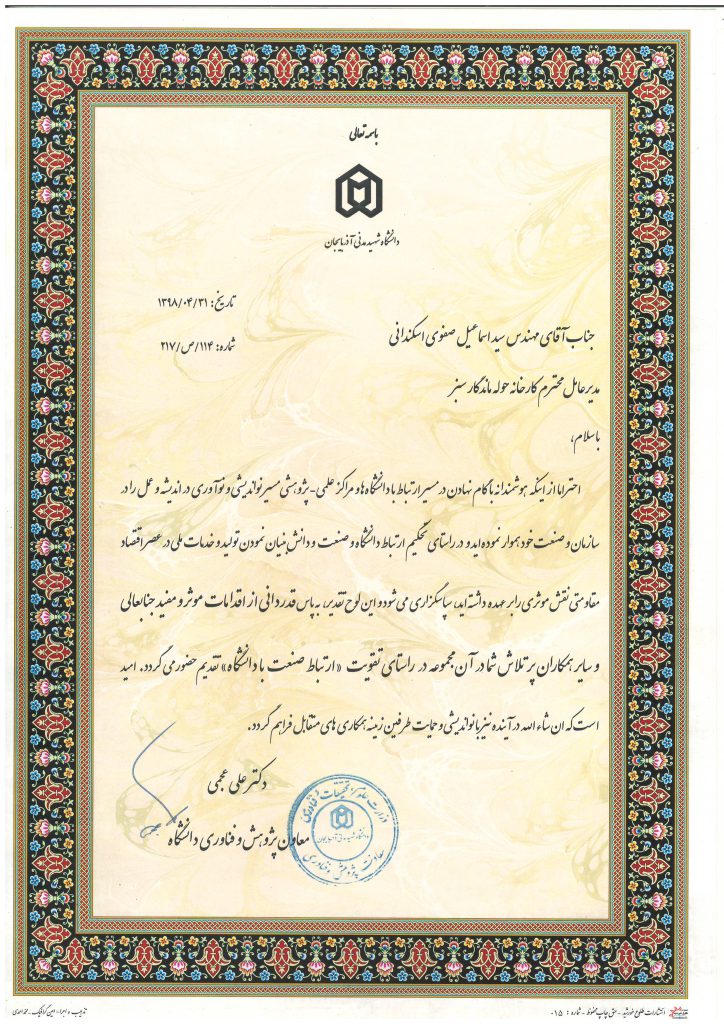 باسمه تعالی
دانشگاه شهید مدنی آذربایجان
تاریخ: ۱۳۹۸/۰۴/۳۱
شماره: ۲۱۷/ص/۱۱۴
جناب آقای مهندس سید اسماعیل صفوی اسکندانی
مدیرعامل محترم کارخانه حوله ماندگار سبز
باسلام،
احتراما از اینکه هوشمندانه با گام نهادن در مسیر ارتباط با دانشگاه ها و مراکز علمی-پژوهشی مسیر نواندیشی و نوآوری در اندیشه و عمل را در
سازمان و صنعت خود هموار نموده اید و در راستای تحکیم ارتباط دانشگاه و صنعت و دانش بنیان نمودن تولید و خدمات ملی در عصر اقتصاد
مقاومتی نقش موثری را بر عهده داشته اید، سپاسگزاری می شود و این لوح تقدیر، به پاس قدردانی از اقدامات موثر و مفید جنابعالی
و سایر همکاران پر تلاش شما در آن مجموعه در راستای تقویت «ارتباط صنعت با دانشگاه» تقدیم حضور می گردد. امید
است که ان شاء الله در آینده نیز با نواندیشی و حمایت طرفین زمینه همکاری های متقابل فراهم گردد.
دکتر علی عجمی
معاون پژوهش و فناوری دانشگاه
وزارت علوم، تحقیقات و فناوری
دانشگاه شهید مدنی آذربایجان
معاونت پژوهش و فناوری
انتشارات طلوع خورشید - حق چاپ محفوظ - شماره : ۰۱۵